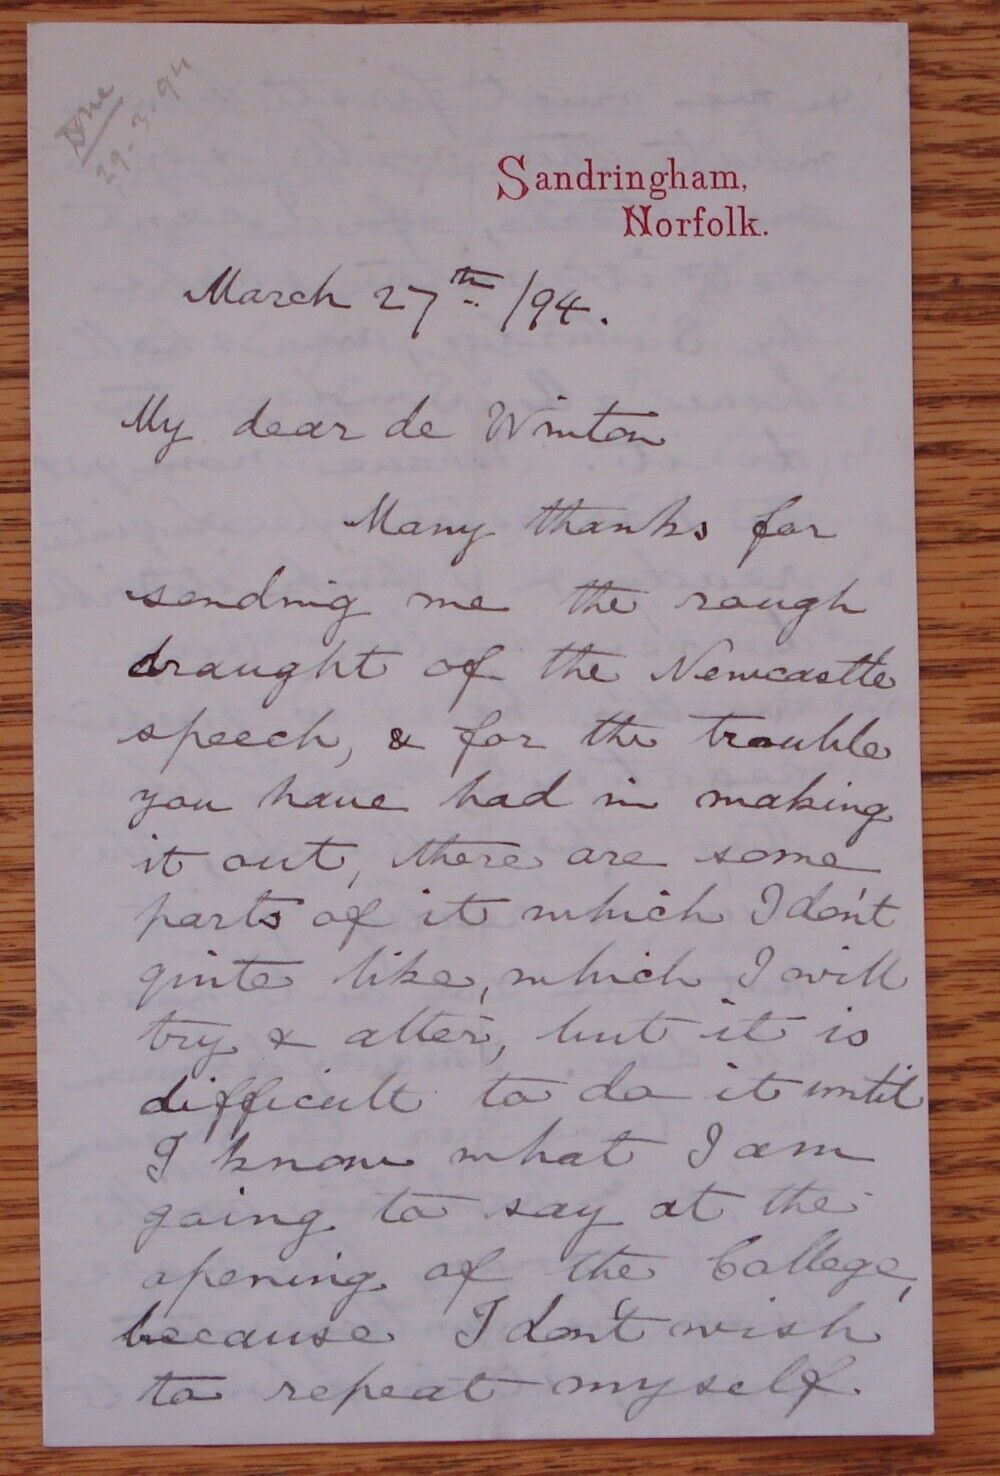 Done
29-3-94
Sandringham,
Norfolk.
March 27th /94.
My dear de Winton
Many thanks for
sending me the rough
draught of the Newcastle
speech, & for the trouble
you have had in making
it out, there are some
parts of it which I don't
quite like, which I will
try & alter, but it is
difficult to do it until
I know what I am
going to say at the
opening of the College,
because I don't wish
to repeat myself.